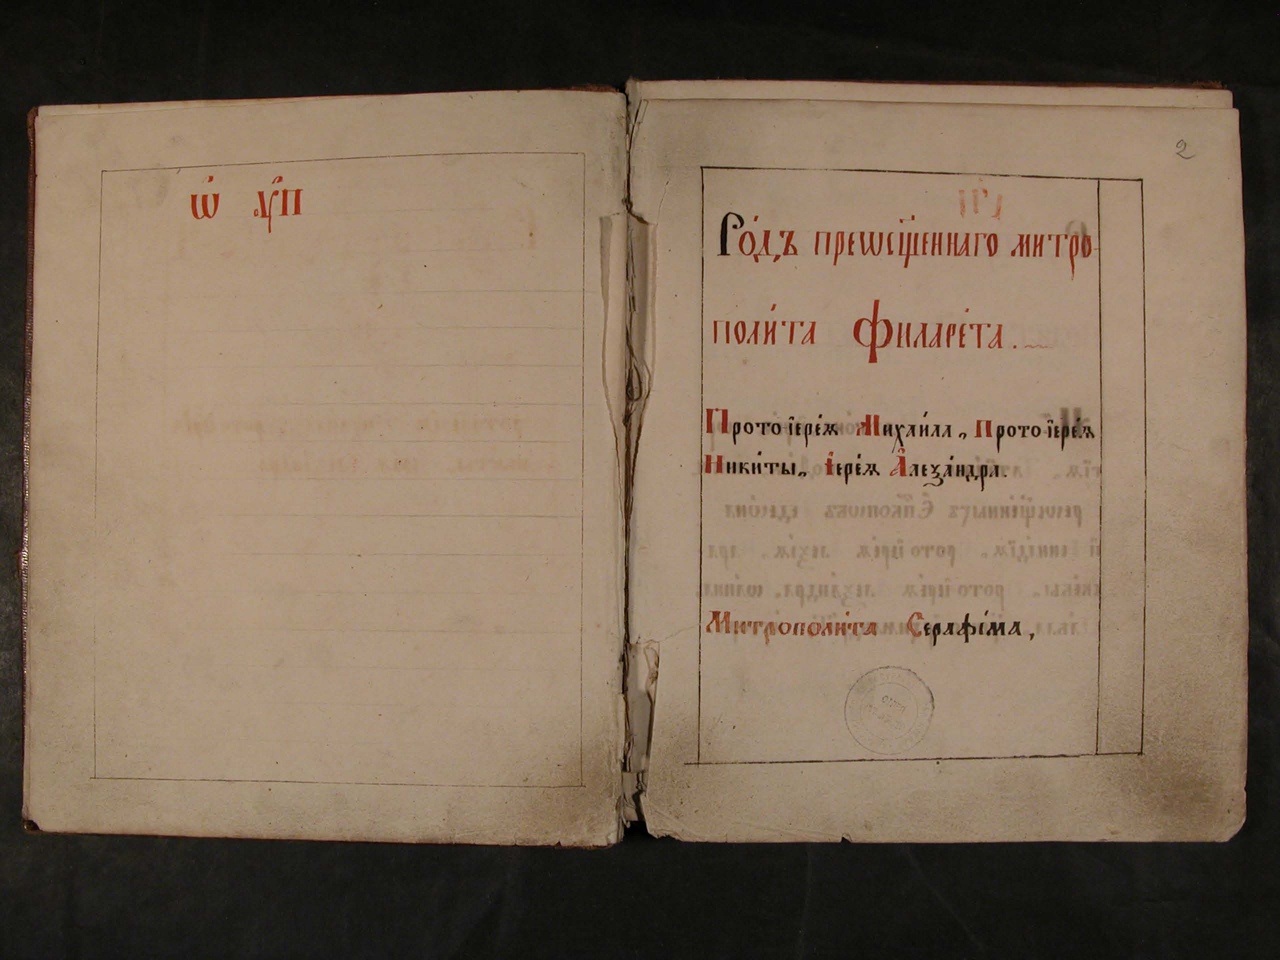 Ѡ҆ ᲂу҆п
2
Ро́дъ преѡсщ҃еннаго митро-
поли́та Филаре́та.
Протоїере́ѧ Михаи́ла, Протоїере́ѧ
Ники́ты, Іере́ѧ А҆леѯа́ндра.
Митрополи́та Серафі́ма,